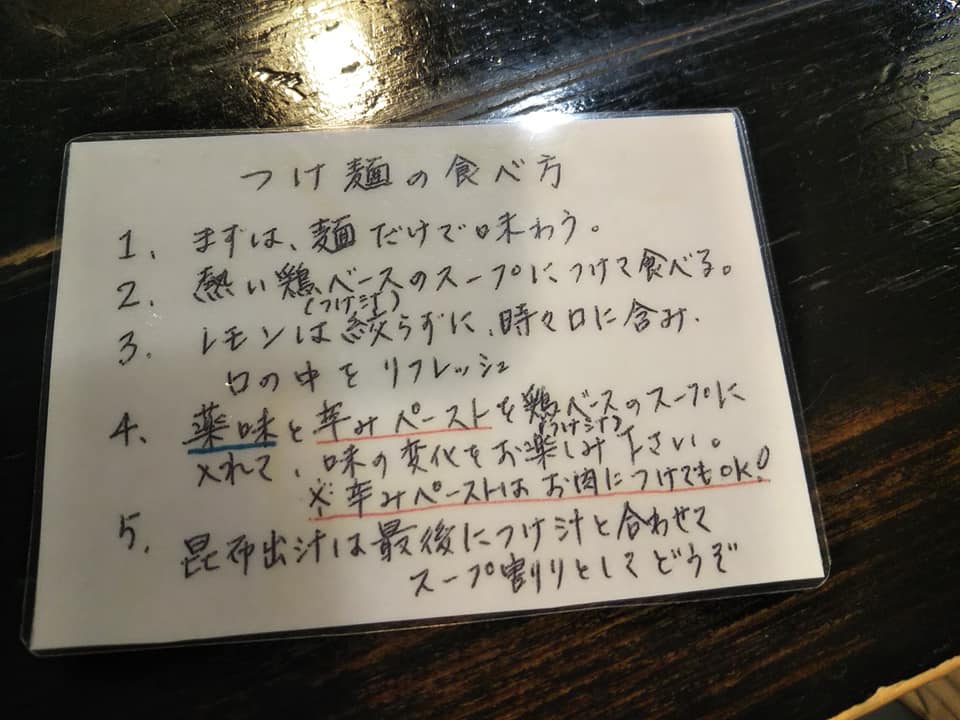 つけ麺の食べ方
1. まずは、麺だけで味わう。
2. 熱い鶏ベースのスープにつけて食べる。
(つけ汁)
3. レモンは絞らずに、時々口に含み、
口の中をリフレッシュ
4. 薬味と辛みペーストを鶏ベースのスープに
(つけ汁)
入れて、味の変化をお楽しみ下さい。
※辛みペーストはお肉につけてもOK!
5. 昆布出汁は最後につけ汁と合わせて
スープ割りりとしてどうぞ